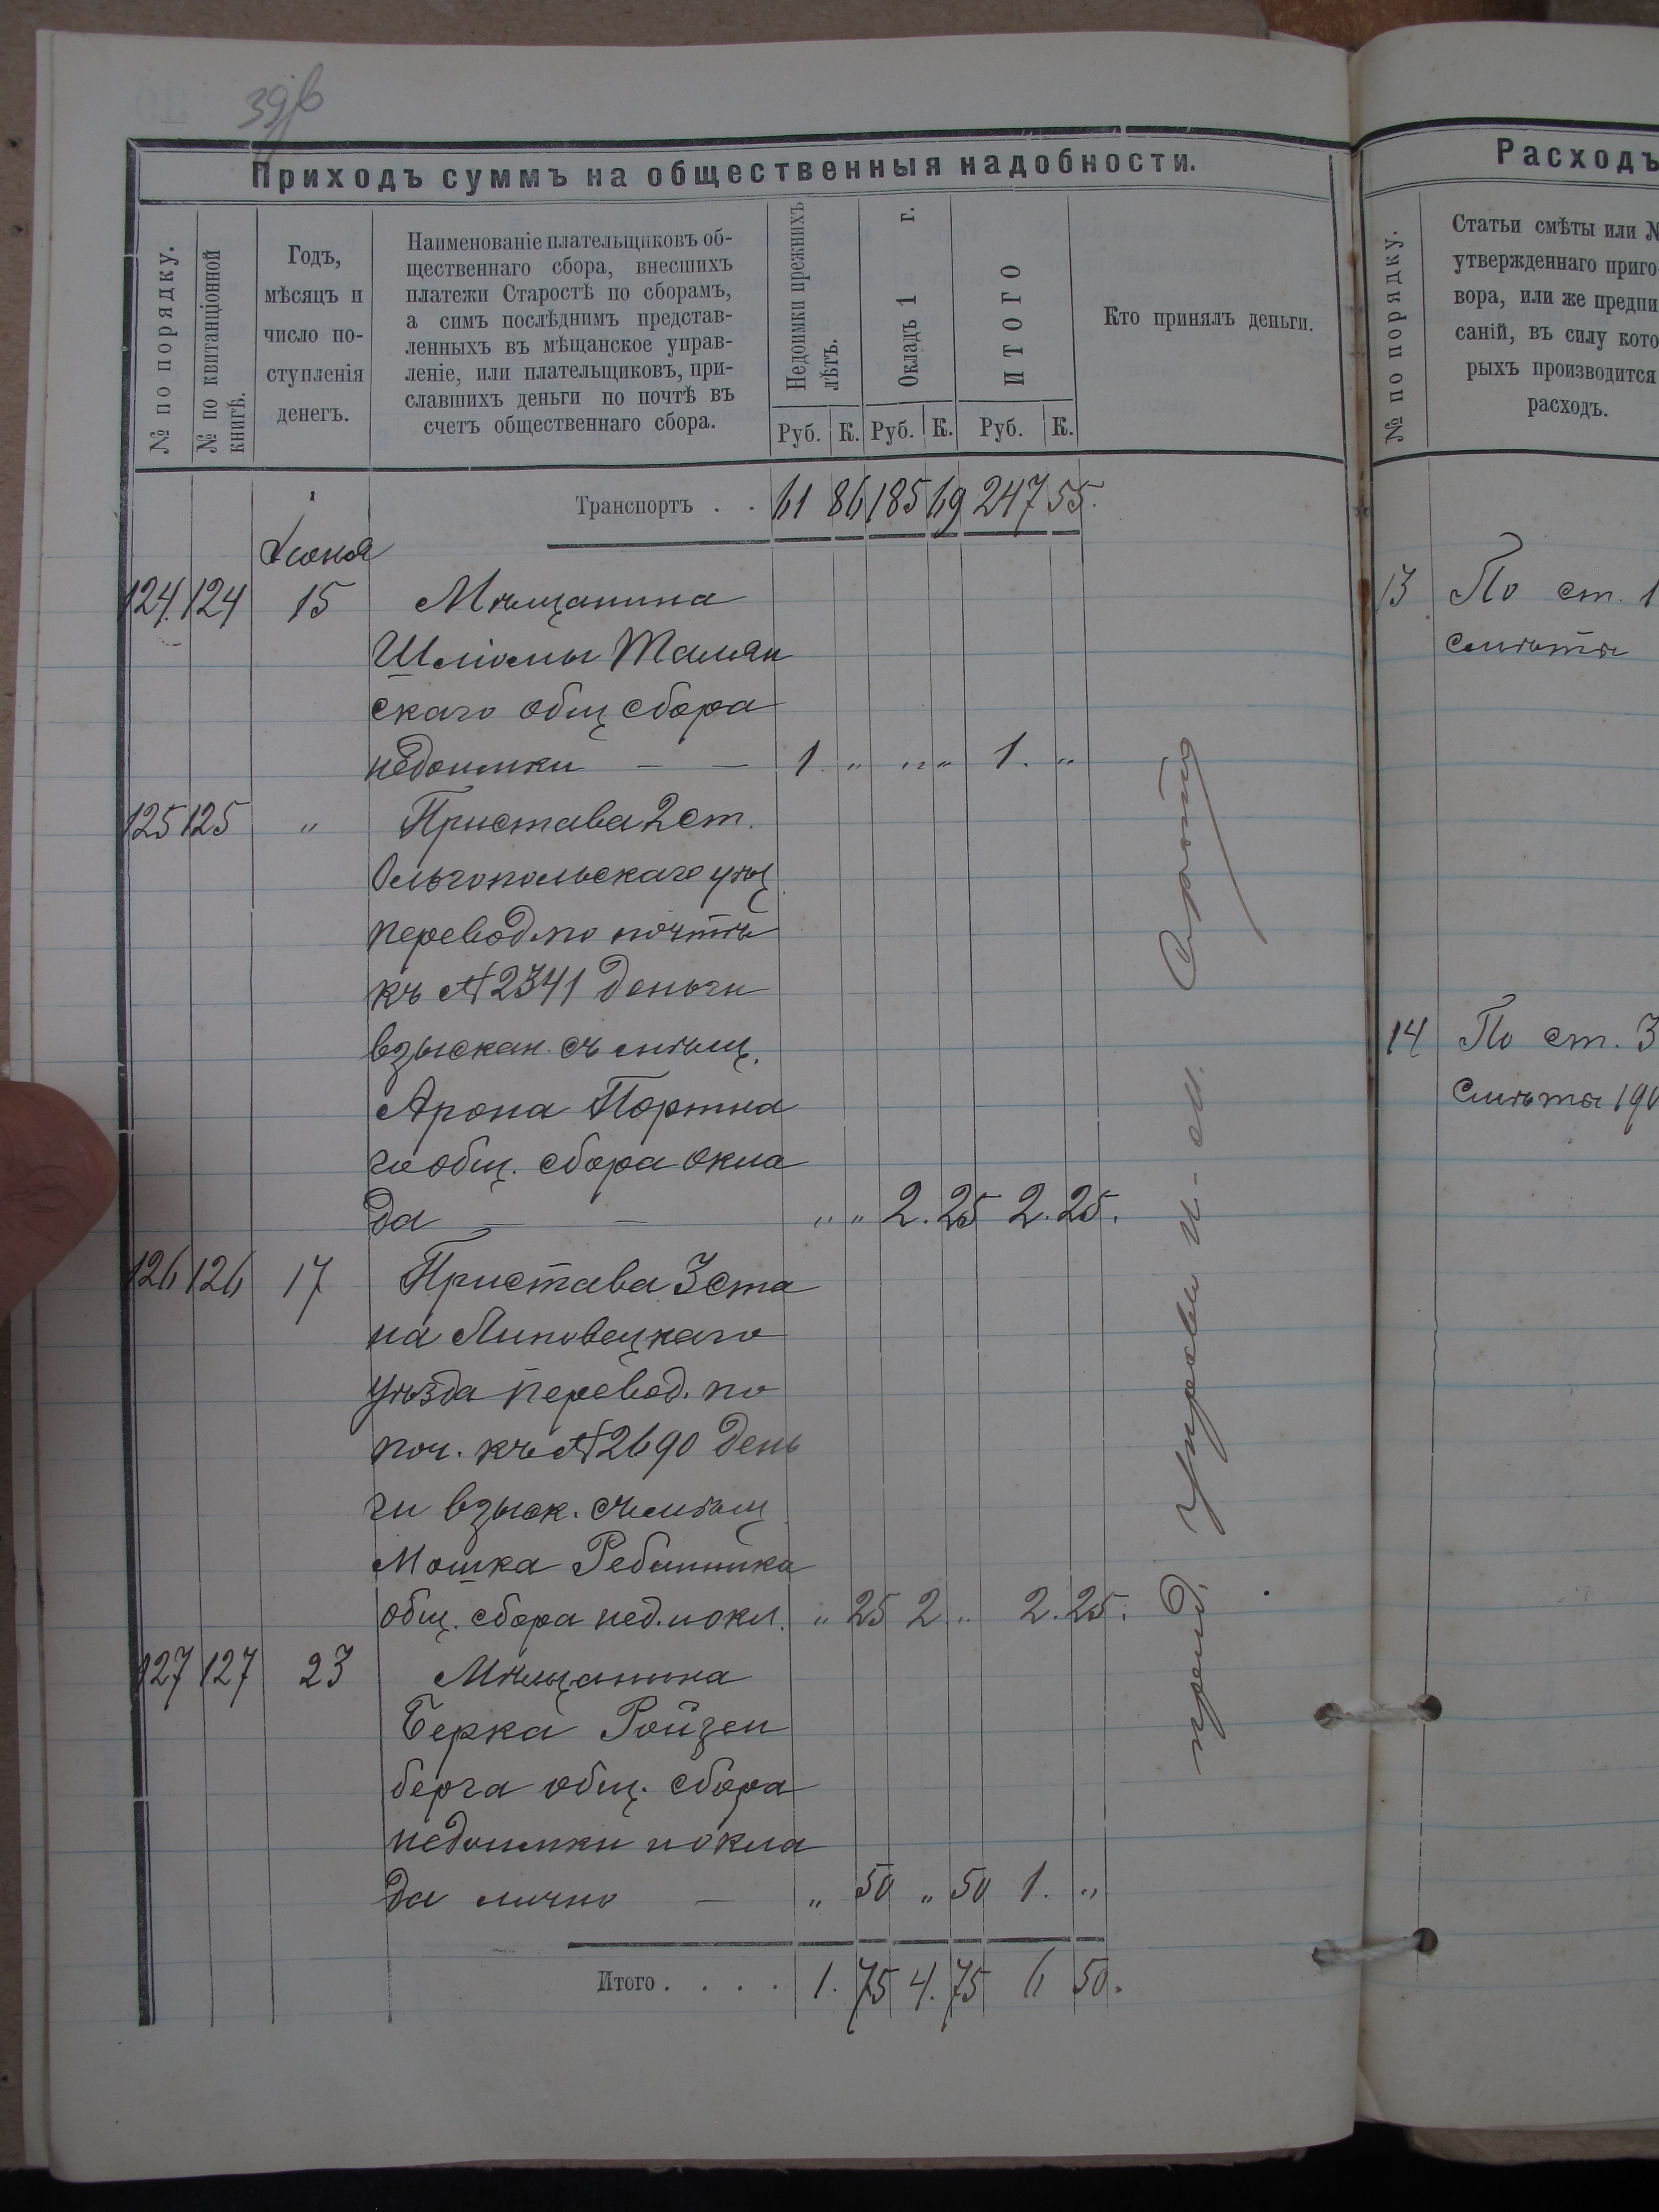 39об
Приходъ суммъ на общественныя надобности.
№ по порядку.
№ по квитанціонной книгѣ.
Годъ,
мѣсяцъ и
число по-
ступленія
денегъ.
Наименованіе плательщиковъ об-
щественнаго сбора, внесшихъ
платежи Старостѣ по сборамъ,
а симъ послѣднимъ представ-
ленныхъ въ мѣщанское управ-
леніе, или плательщиковъ, при-
славшихъ деньги по почтѣ въ
счетъ общественнаго сбора.
Недоимки прежнихъ лѣтъ.
Окладъ 1 г.
ИТОГО
Кто принялъ деньги.
Руб. К. Руб. К. Руб. К.
Транспортъ . . 61 86 185 69 247 55.
Іюня
124. 124 15 Мѣщанина
Шліомы Талян
скаго общ сбора
недоимки — — 1. „ „ „ 1. „
125 125 „ Пристава 2 ст.
Ольгопольскаго уѣз
перевод. по почтѣ
къ № 2341 деньги
взыскан. съ мѣщ.
Арона Портна
го общ. сбора окла
да — — „ „ 2. 25 2. 25.
126 126 17 Пристава 3 ста
на Липовецкаго
уѣзда перевод. по
поч. къ № 2690 день
ги взыск. съ мѣщ
Мошка
общ. сбора нед. и окл. „ 25 2 „ 2. 25.
127 127 23 Мѣщанина
Берка Ройзен
берга общ. сбора
недоимки и окла
да лично — „ 50 „ 50 1. „
Итого . . . . 1. 75 4. 75 6 50.
Управы
Расходъ
№ по порядку.
Статьи смѣты или №
утвержденнаго приго
вора, или же предпи
саній, въ силу кото
рыхъ производится
расходъ.
13 По ст. 1
смѣты
14 По ст. 3
смѣты 190